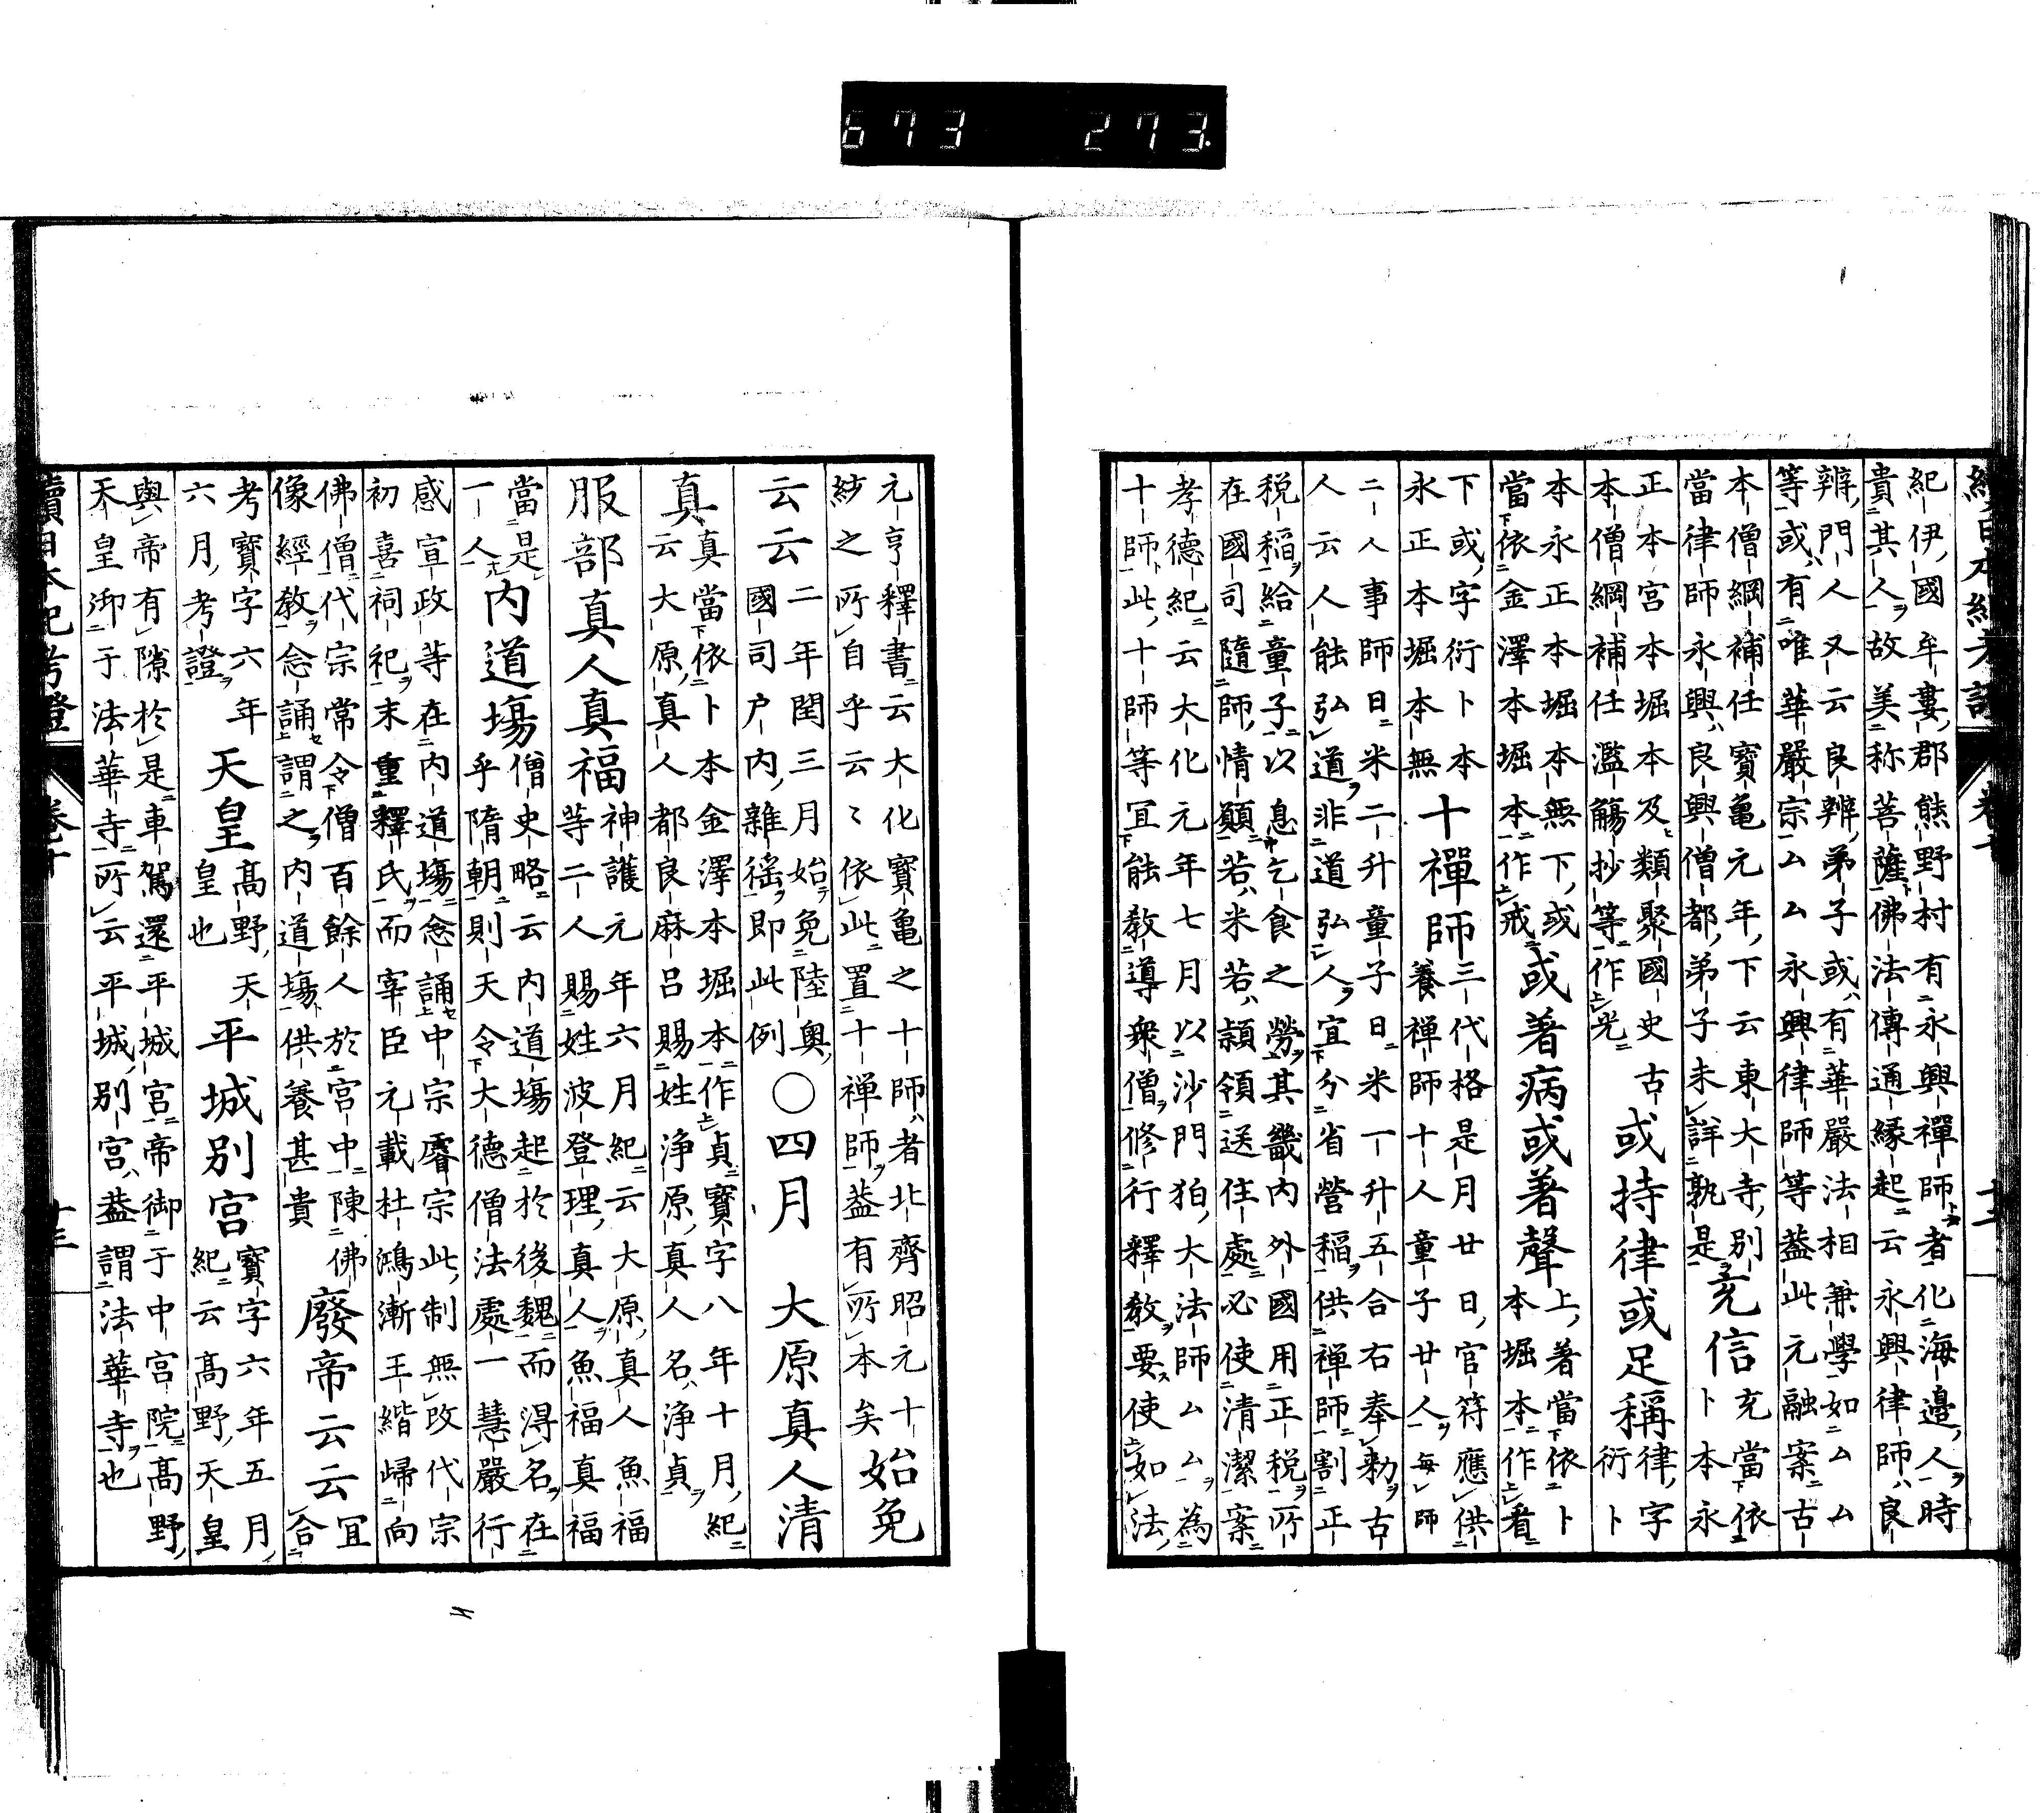 673 273.
紀伊國牟婁郡熊野村有永興禪師者化海邊人時
貴其人故美称菩薩佛法傳通緣起云永興律師良
辨門人又云良辨弟子或有華嚴法相兼學如ムム
等或有唯華嚴宗ムム永興律師等蓋此元融案古
本僧綱補任寶亀元年下云東大寺別
當律師永興良興僧都弟子未詳孰是
充信
充當依
卜本永
正本宮本堀本及類聚國史古
本僧綱補任濫觴抄等作光
或持律或足稱
律字
衍卜
本永正本堀本無下或
當依金澤本堀本作戒
或著病或著聲
上著當依卜
本堀本作看
下或字衍卜本
永正本堀本無
十禪師
三代格是月廿日官符應供
養禅師十人童子廿人每師
二人事師日米二升童子日米一升五合右奉勅古
人云人能弘道非道弘人宜分省營稲供禅師割正
税稲給童子以息乞食之勞其畿内外國用正税所
在國司隨師情願若米若頴領送住處必使清潔案
孝德紀云大化元年七月以沙門狛大法師ムム為
十師此十師等宜能教導衆僧修行釋教要使如法
元亨釋書云大化寶亀之十師者北齊昭元十
紗之所自乎云〻依此置十禅師蓋有所本矣
始免
云云
二年閏三月始免陸奥
國司户内雜徭即此例
○四月 大原真人清
真
真當依卜本金澤本堀本作貞寶字八年十月紀
云大原真人都良麻呂賜姓浄原真人名浄貞
服部真人真福
神護元年六月紀云大原真人魚福
等二人賜姓波登理真人魚福真福
當是
一人
内道場
僧史略云内道場起於後魏而淂名在
乎隋朝則天令大德僧法處一慧嚴行
感宣政等在内道場念誦中宗睿宗此制無改代宗
初喜祠祀末重釋氏而宰臣元載杜鴻漸王縉歸向
佛僧代宗常令僧百餘人於宮中陳佛
像經教念誦謂之内道場供養甚貴
廢帝云云
宜
合
考寶字六年
六月考證
天皇
高野天
皇也
平城別宮
寶字六年五月
紀云高野天皇
與帝有隙於是車駕還平城宮帝御于中宮院高野
天皇御于法華寺所云平城別宮蓋謂法華寺也
續日本紀考證 卷十 十三